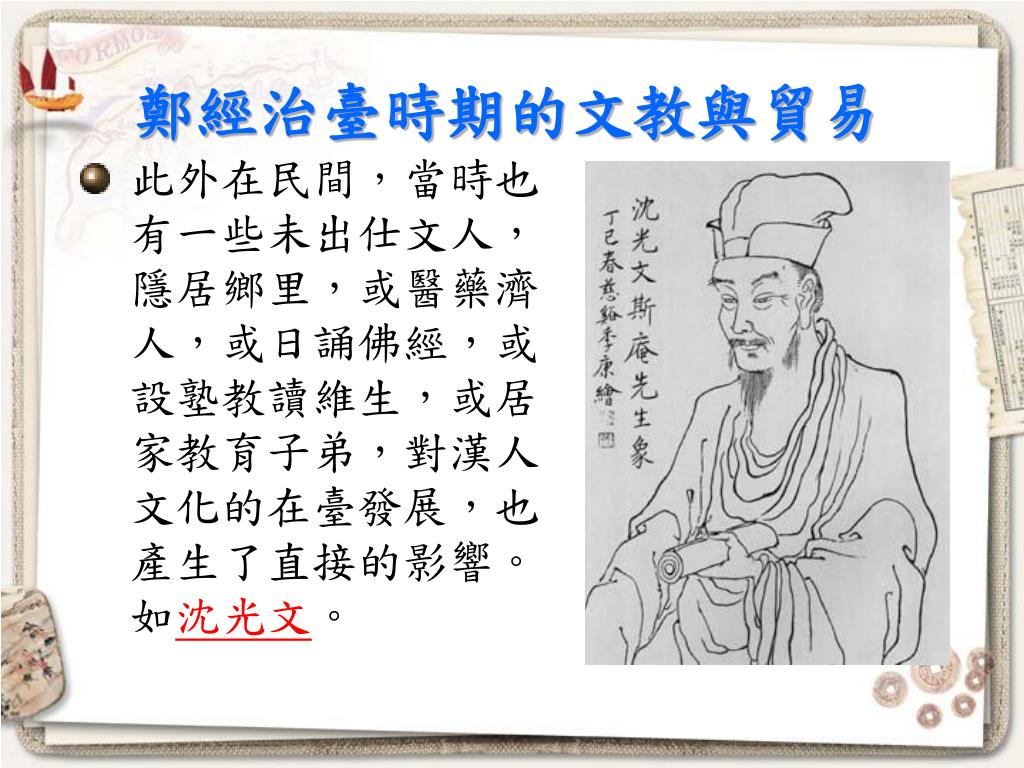 FORMOS
鄭經治臺時期的文教與貿易
此外在民間，當時也
有一些未出仕文人，
隱居鄉里，或醫藥濟
人，或日誦佛經，或
設塾教讀維生，或居
家教育子弟，對漢人
文化的在臺發展，也
產生了直接的影響。
如沈光文。
沈光文斯庵先生象
丁巳春慈谿季康繪